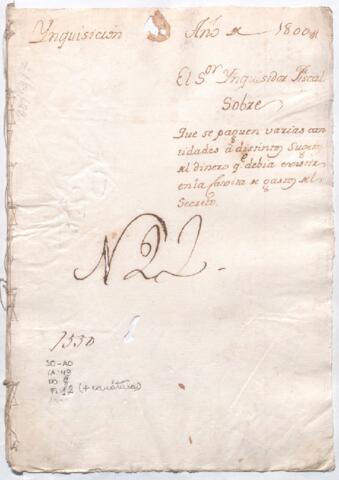 Ynquisicion Año de 1800
El S.or Ynquisidor Fiscal
Sobre
Que se paguen varias can
tidades a distintos Sugetos
del dinero q. debia existir
en la de gastos del
Secreto.
N 22.
1330
SO-AO
F. 12